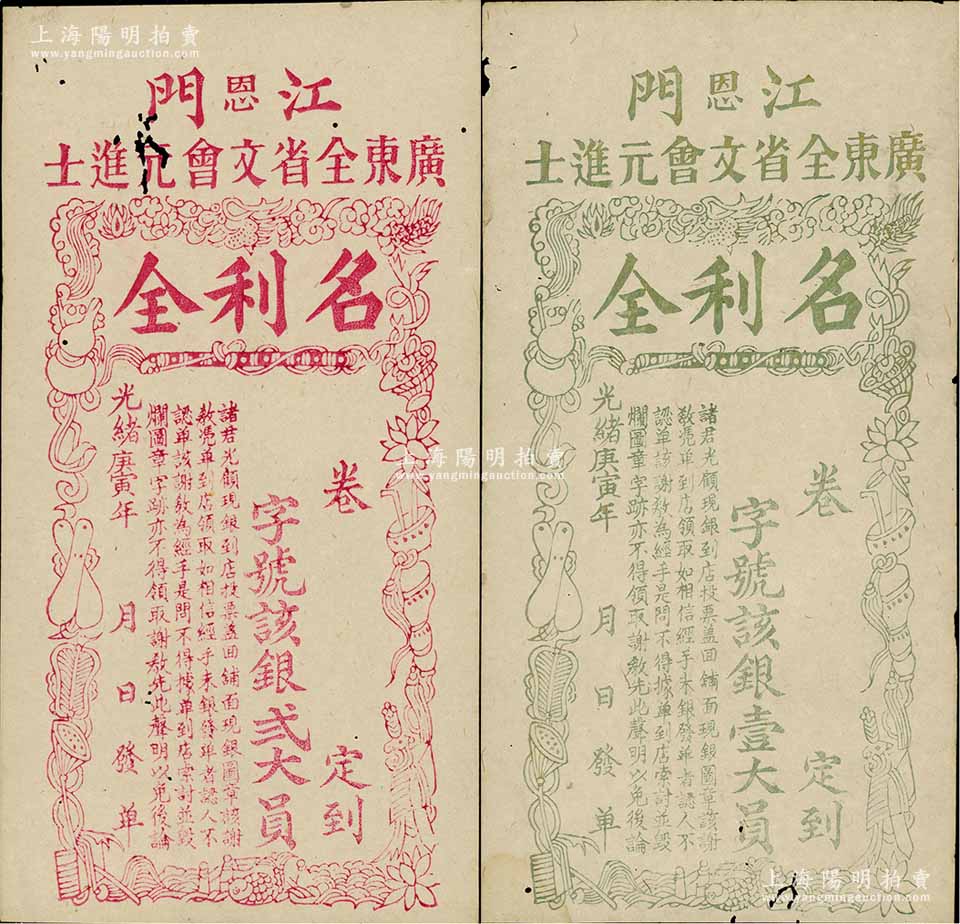 上海陽明拍賣
www.yangmingauction.com
江恩門
廣東全省文會元進士
名利全
卷
定到
字號該銀弍大員
諸君光顧現銀到店投票蓋回鋪面現銀圖章該謝
教憑單到店領取如相信經手未銀發單者認人不
認單該謝教為經手是問不得據單到店索討並毀
爛圖章字跡亦不得領取謝教先此聲明以免後論
光緒庚寅年 月 日 發 單
江恩門
廣東全省文會元進士
名利全
卷
定到
字號該銀壹大員
諸君光顧現銀到店投票蓋回鋪面現銀圖章該謝
教憑單到店領取如相信經手未銀發單者認人不
認單該謝教為經手是問不得據單到店索討並毀
爛圖章字跡亦不得領取謝教先此聲明以免後論
光緒庚寅年 月 日 發 單
上海陽明拍賣
www.yangmingauction.com
上海陽明拍賣
www.yangmingauction.com